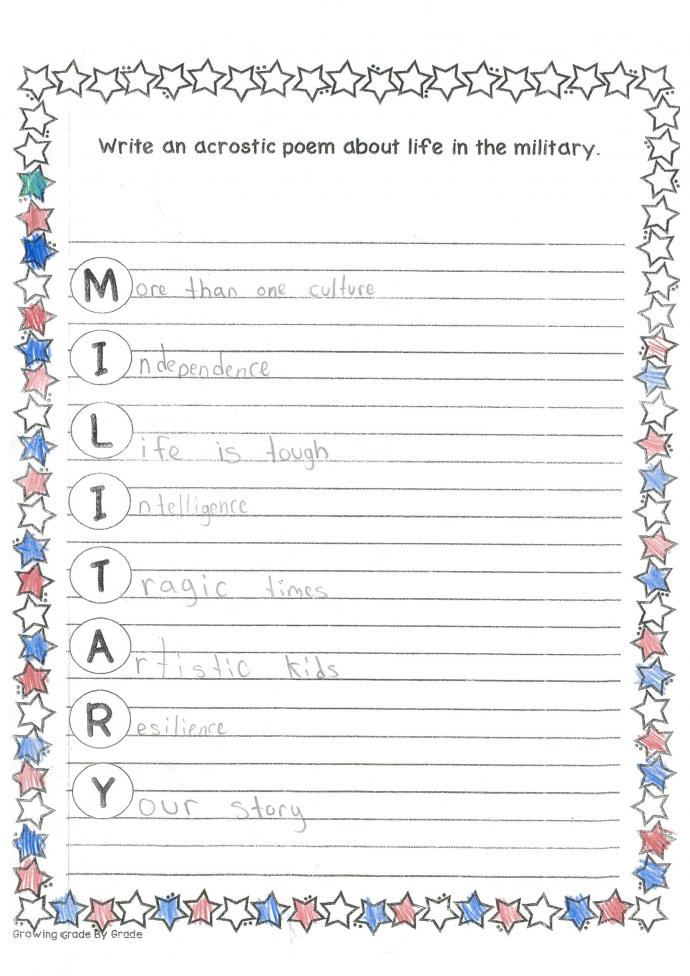 Write an acrostic poem about life in the military.
More than one culture
Independence
Life is tough
Intelligence
Tragic times
Artistic kids
Resilience
Your story
Growing Grade By Grade